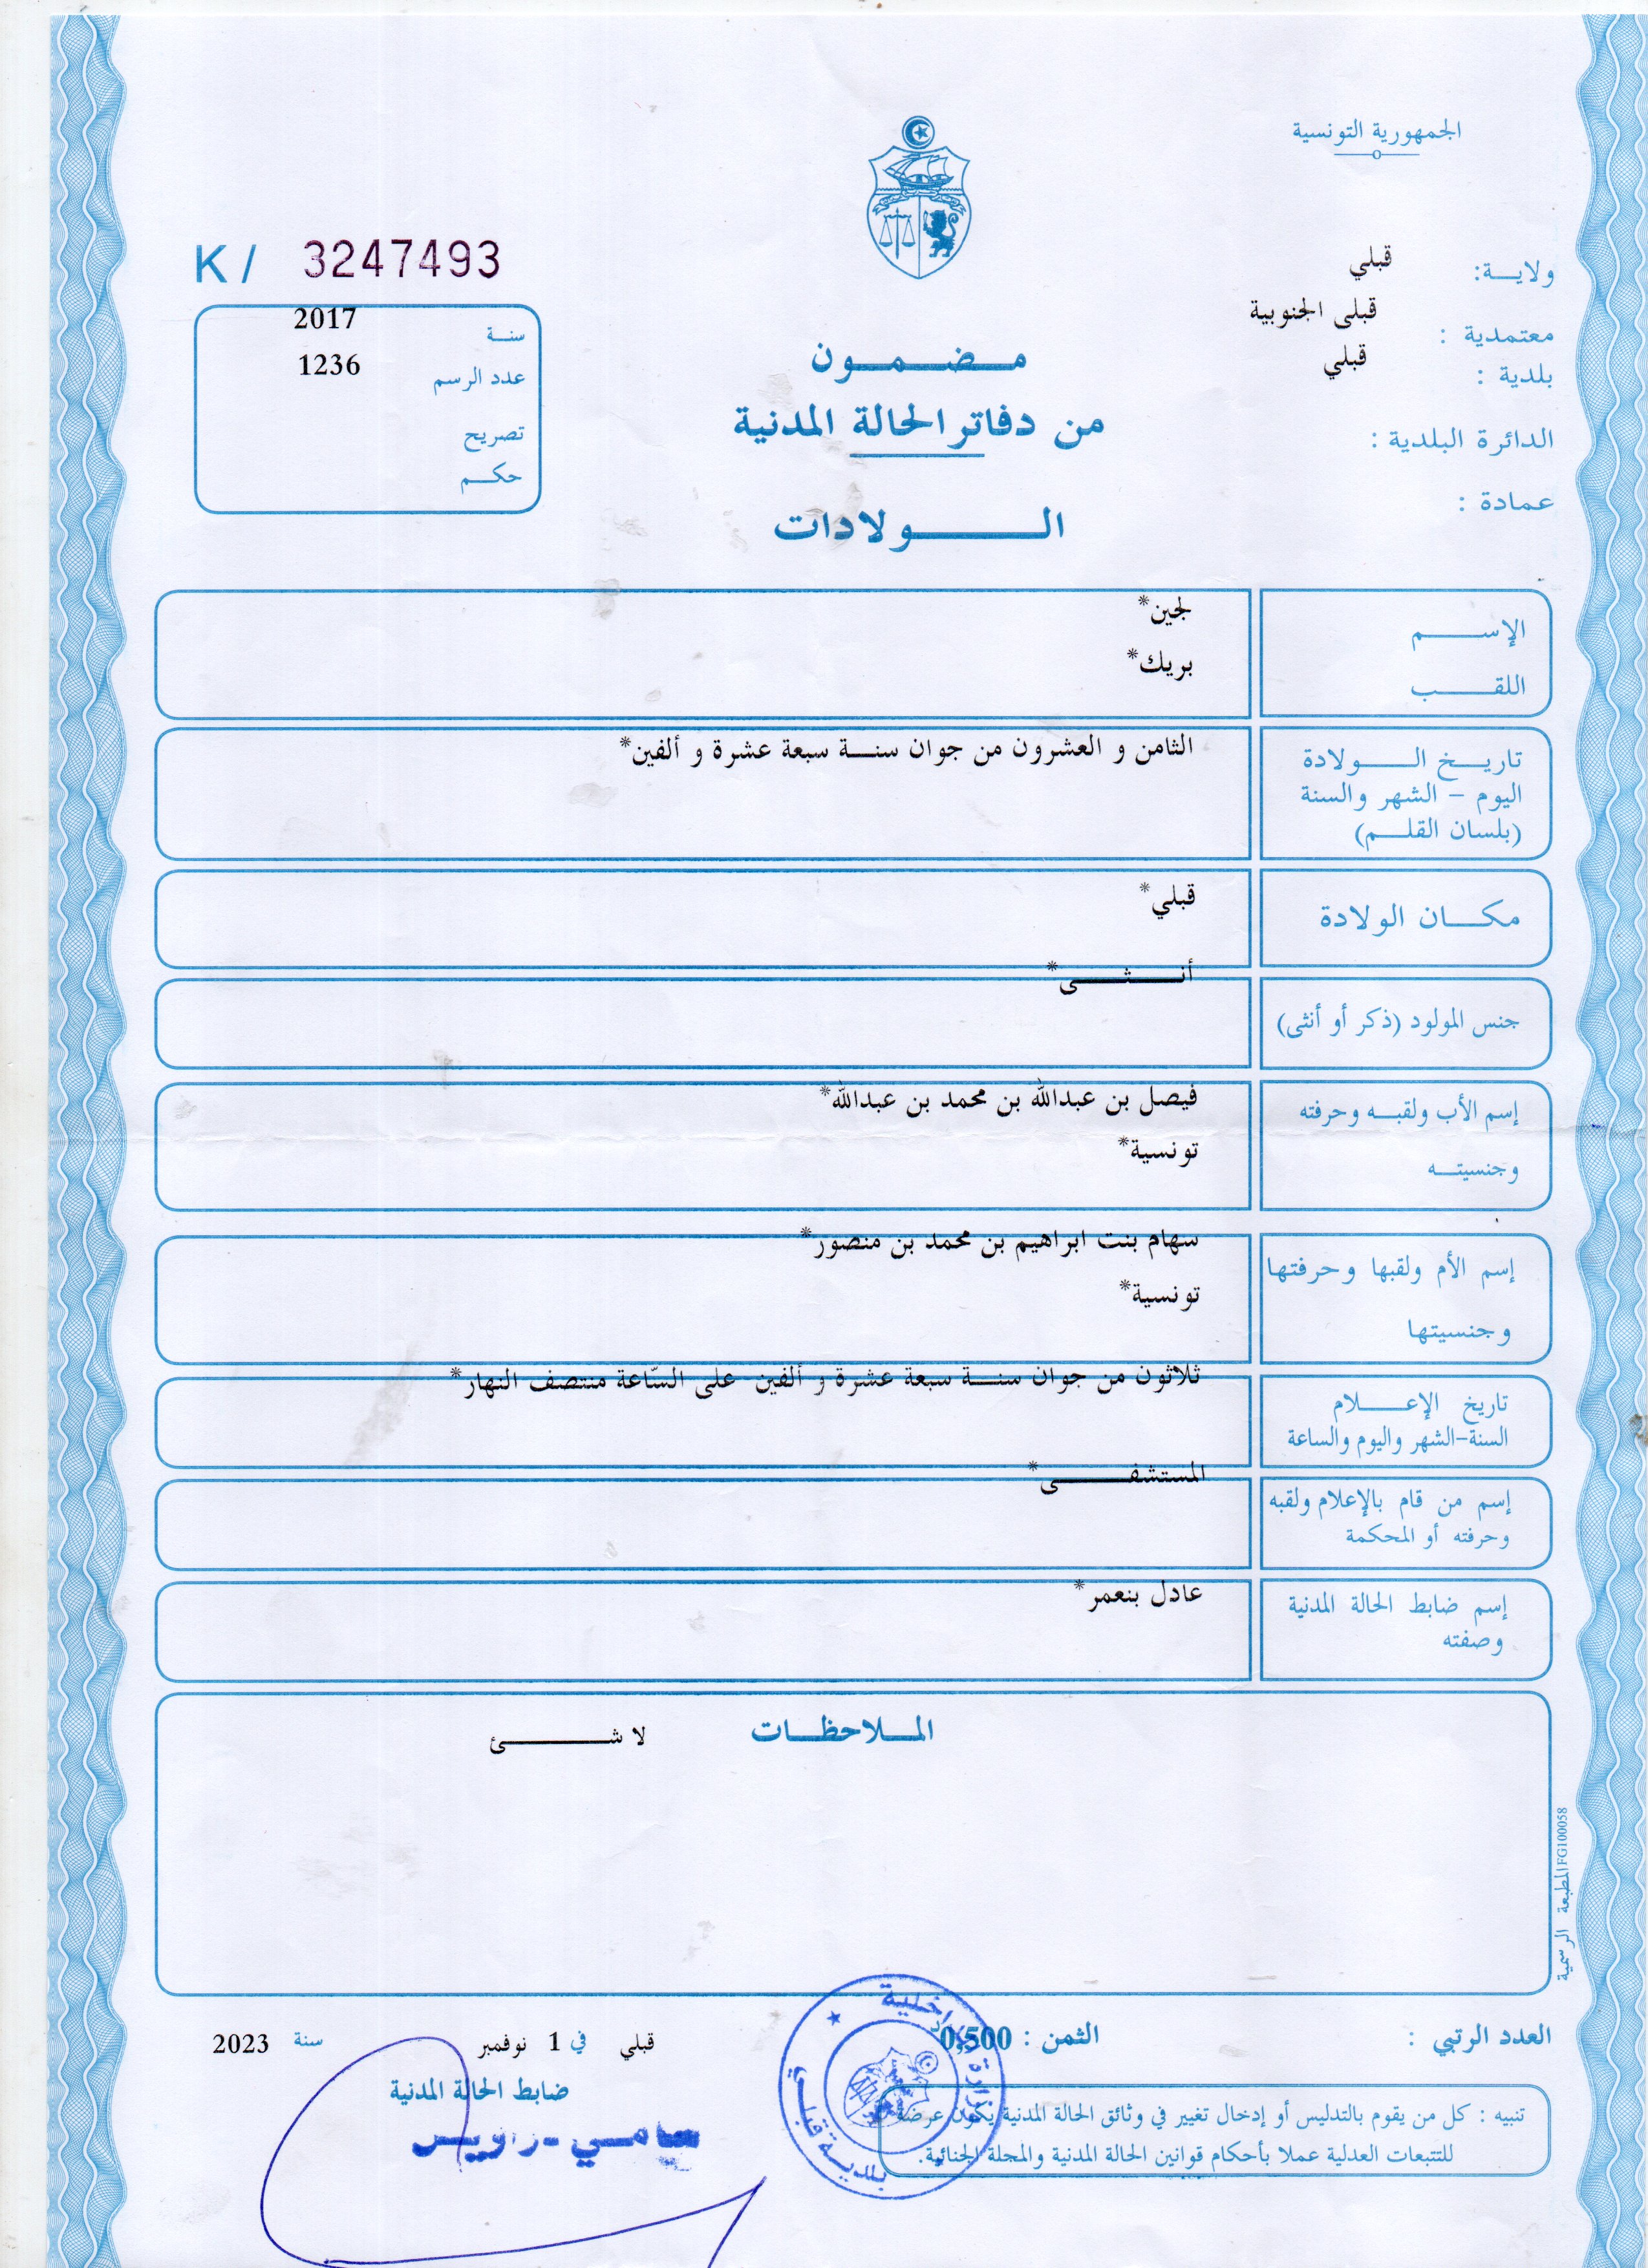 الجمهورية التونسية
ولاية: قبلي
معتمدية : قبلى الجنوبية
بلدية : قبلي
الدائرة البلدية :
عمادة :
K / 3247493
سنة 2017
عدد الرسم 1236
تصريح
حكم
مضمون
من دفاتر الحالة المدنية
الولادات
الإسم لجين*
اللقب بريك*
تاريخ الولادة
اليوم - الشهر والسنة
(بلسان القلم)
الثامن و العشرون من جوان سنة سبعة عشرة و ألفين*
مكان الولادة قبلي*
جنس المولود (ذكر أو أنثى) أنثى*
إسم الأب ولقبه وحرفته فيصل بن عبدالله بن محمد بن عبدالله*
وجنسيته تونسية*
إسم الأم ولقبها وحرفتها سهام بنت ابراهيم بن محمد بن منصور*
وجنسيتها تونسية*
تاريخ الإعلام
السنة-الشهر واليوم والساعة
ثلاثون من جوان سنة سبعة عشرة و ألفين على السّاعة منتصف النهار*
إسم من قام بالإعلام ولقبه
وحرفته أو المحكمة
المستشفى*
إسم ضابط الحالة المدنية
وصفته
عادل بنعمر*
الملاحظات لا شئ
المطبعة الرسمية FG100058
العدد الرتبي :
الثمن : 0,500
قبلي في 1 نوفمبر سنة 2023
ضابط الحالة المدنية
سامي
وزارة الداخلية
بلدية قبلي
تنبيه : كل من يقوم بالتدليس أو إدخال تغيير في وثائق الحالة المدنية يكون عرضة
للتتبعات العدلية عملا بأحكام قوانين الحالة المدنية والمجلة الجنائية.